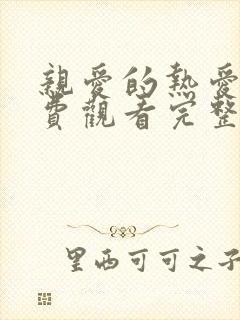 親愛的熱愛
費觀看完整
里西可可之子